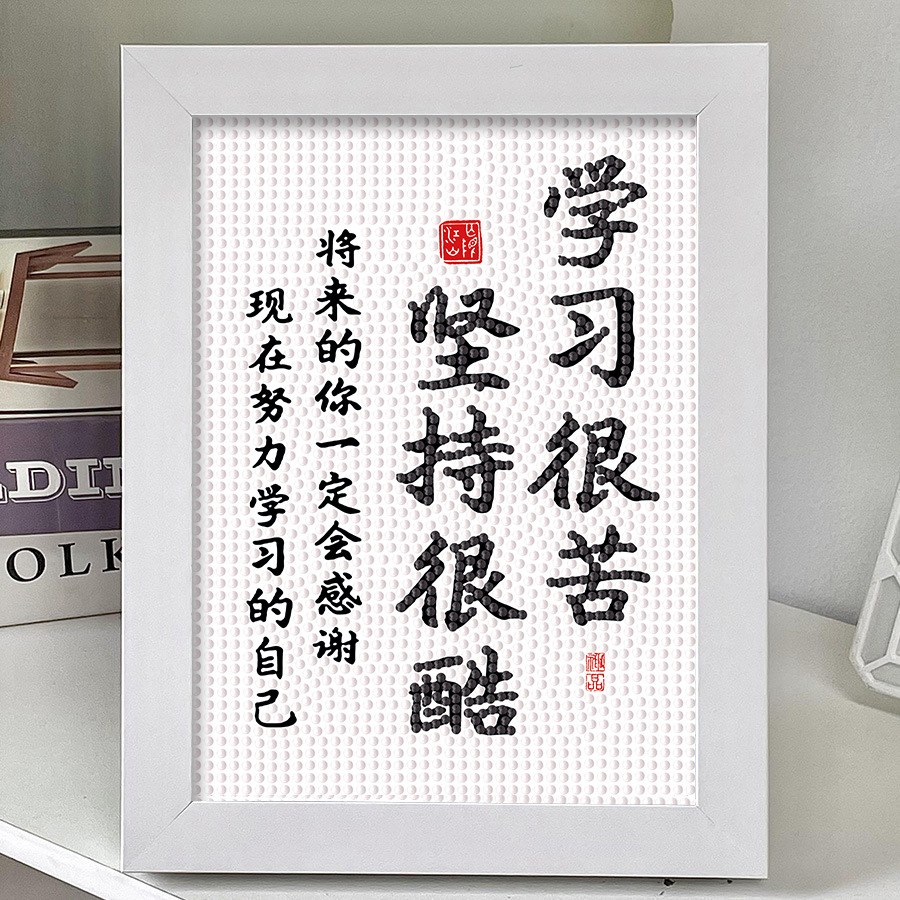 学习很苦
坚持很酷
将来的你一定会感谢
现在努力学习的自己
ADIN
OLK